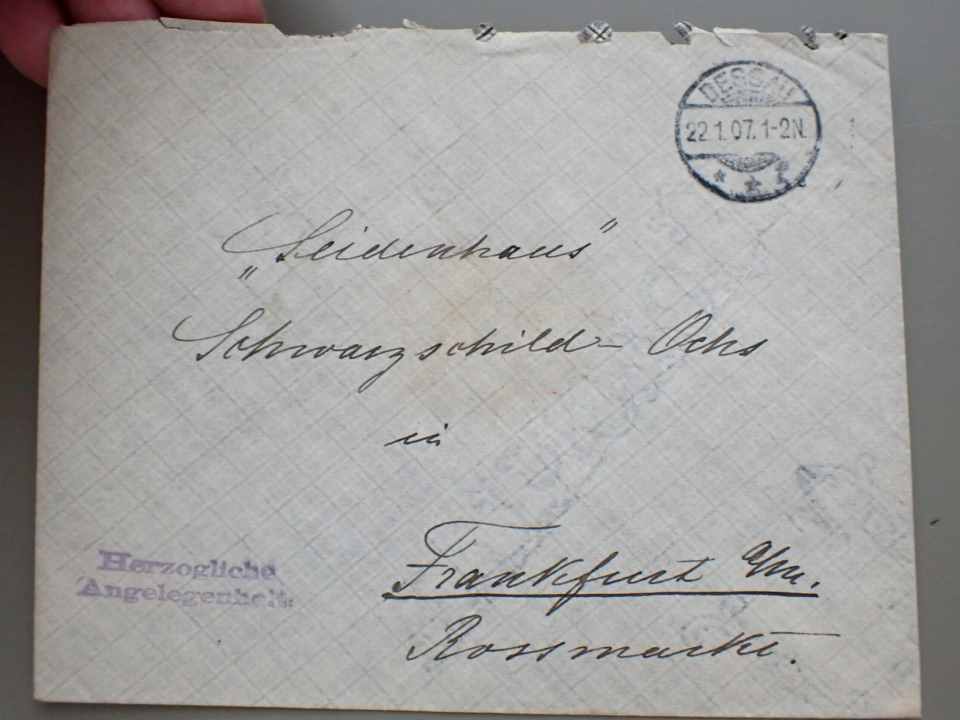 DESSAU
22.1.07.1-2N.
* *
„Seidenhaus"
Schwarzschild - Ochs
in
Frankfurt a/m.
Rossmarkt.
Herzogliche
Angelegenheit.